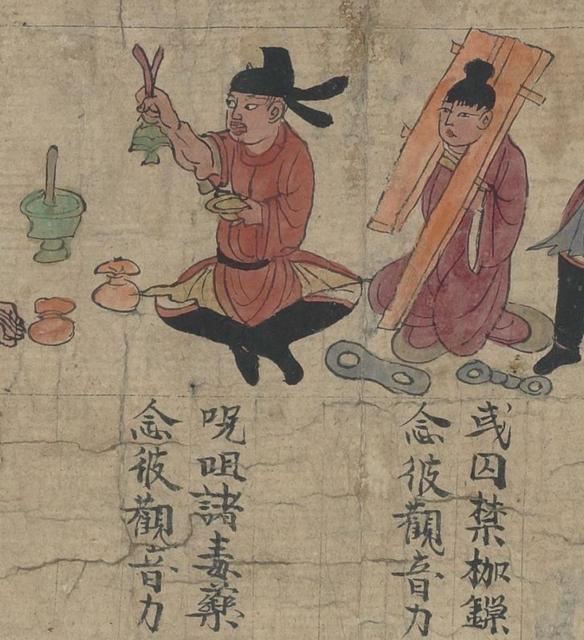 或囚禁枷鏁
念彼觀音力
呪咀諸毒藥
念彼觀音力